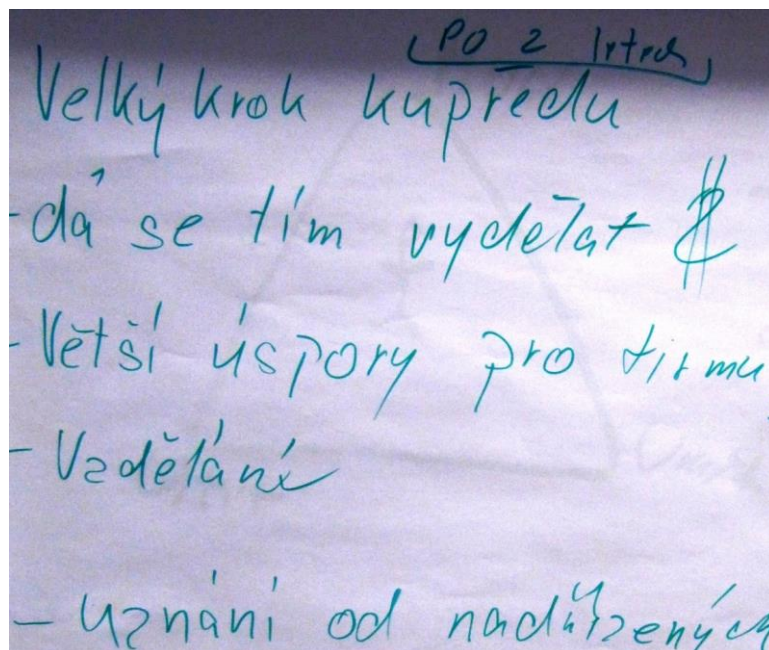 PO 2 letech
Velký krok kupředu
- dá se tím vydělat $
- Větší úspory pro firmu
- Vzdělání
- uznání od nadřízených